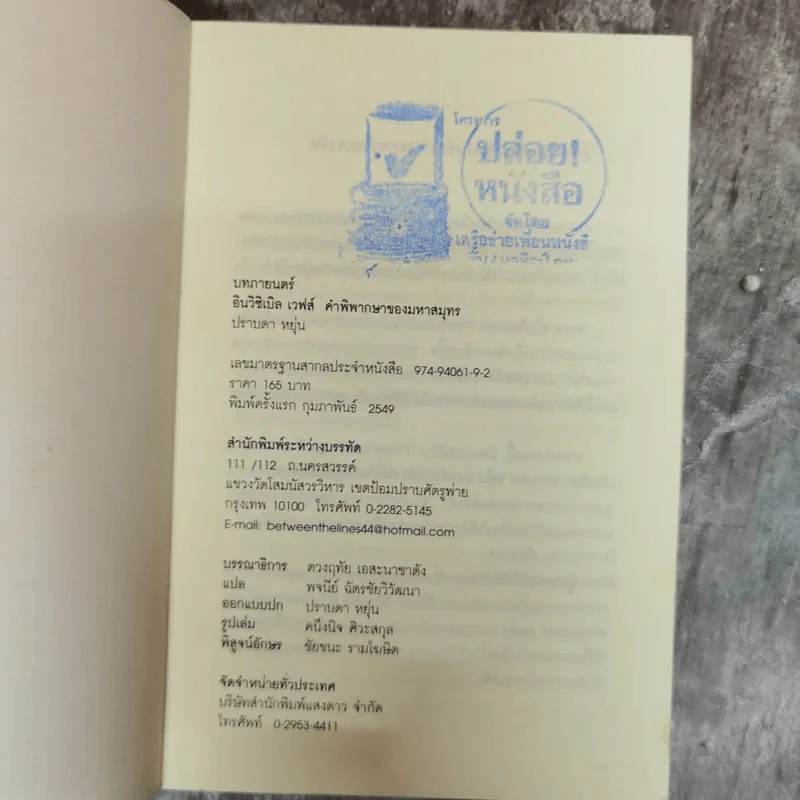 โครงการ
ปล่อย!
หนังสือ
จัดโดย
เครือข่ายเพื่อนหนังสื
บทภายนตร์
อินวิซิเบิล เวฟส์ คำพิพากษาของมหาสมุทร
ปราบดา หยุ่น
เลขมาตรฐานสากลประจำหนังสือ 974-94061-9-2
ราคา 165 บาท
พิมพ์ครั้งแรก กุมภาพันธ์ 2549
สำนักพิมพ์ระหว่างบรรทัด
111 /112 ถ.นครสวรรค์
แขวงวัดโสมนัสวรวิหาร เขตป้อมปราบศัตรูพ่าย
กรุงเทพ 10100 โทรศัพท์ 0-2282-5145
E-mail: betweenthelines44@hotmail.com
บรรณาธิการ ดวงฤทัย เอสะนาชาตัง
แปล พจนีย์ ฉัตรชัยวิวัฒนา
ออกแบบปก ปราบดา หยุ่น
รูปเล่ม คนึงนิจ ศิวะสกุล
พิสูจน์อักษร ชัยชนะ รามโฆษิต
จัดจำหน่ายทั่วประเทศ
บริษัทสำนักพิมพ์แสงดาว จำกัด
โทรศัพท์ 0-2953-4411